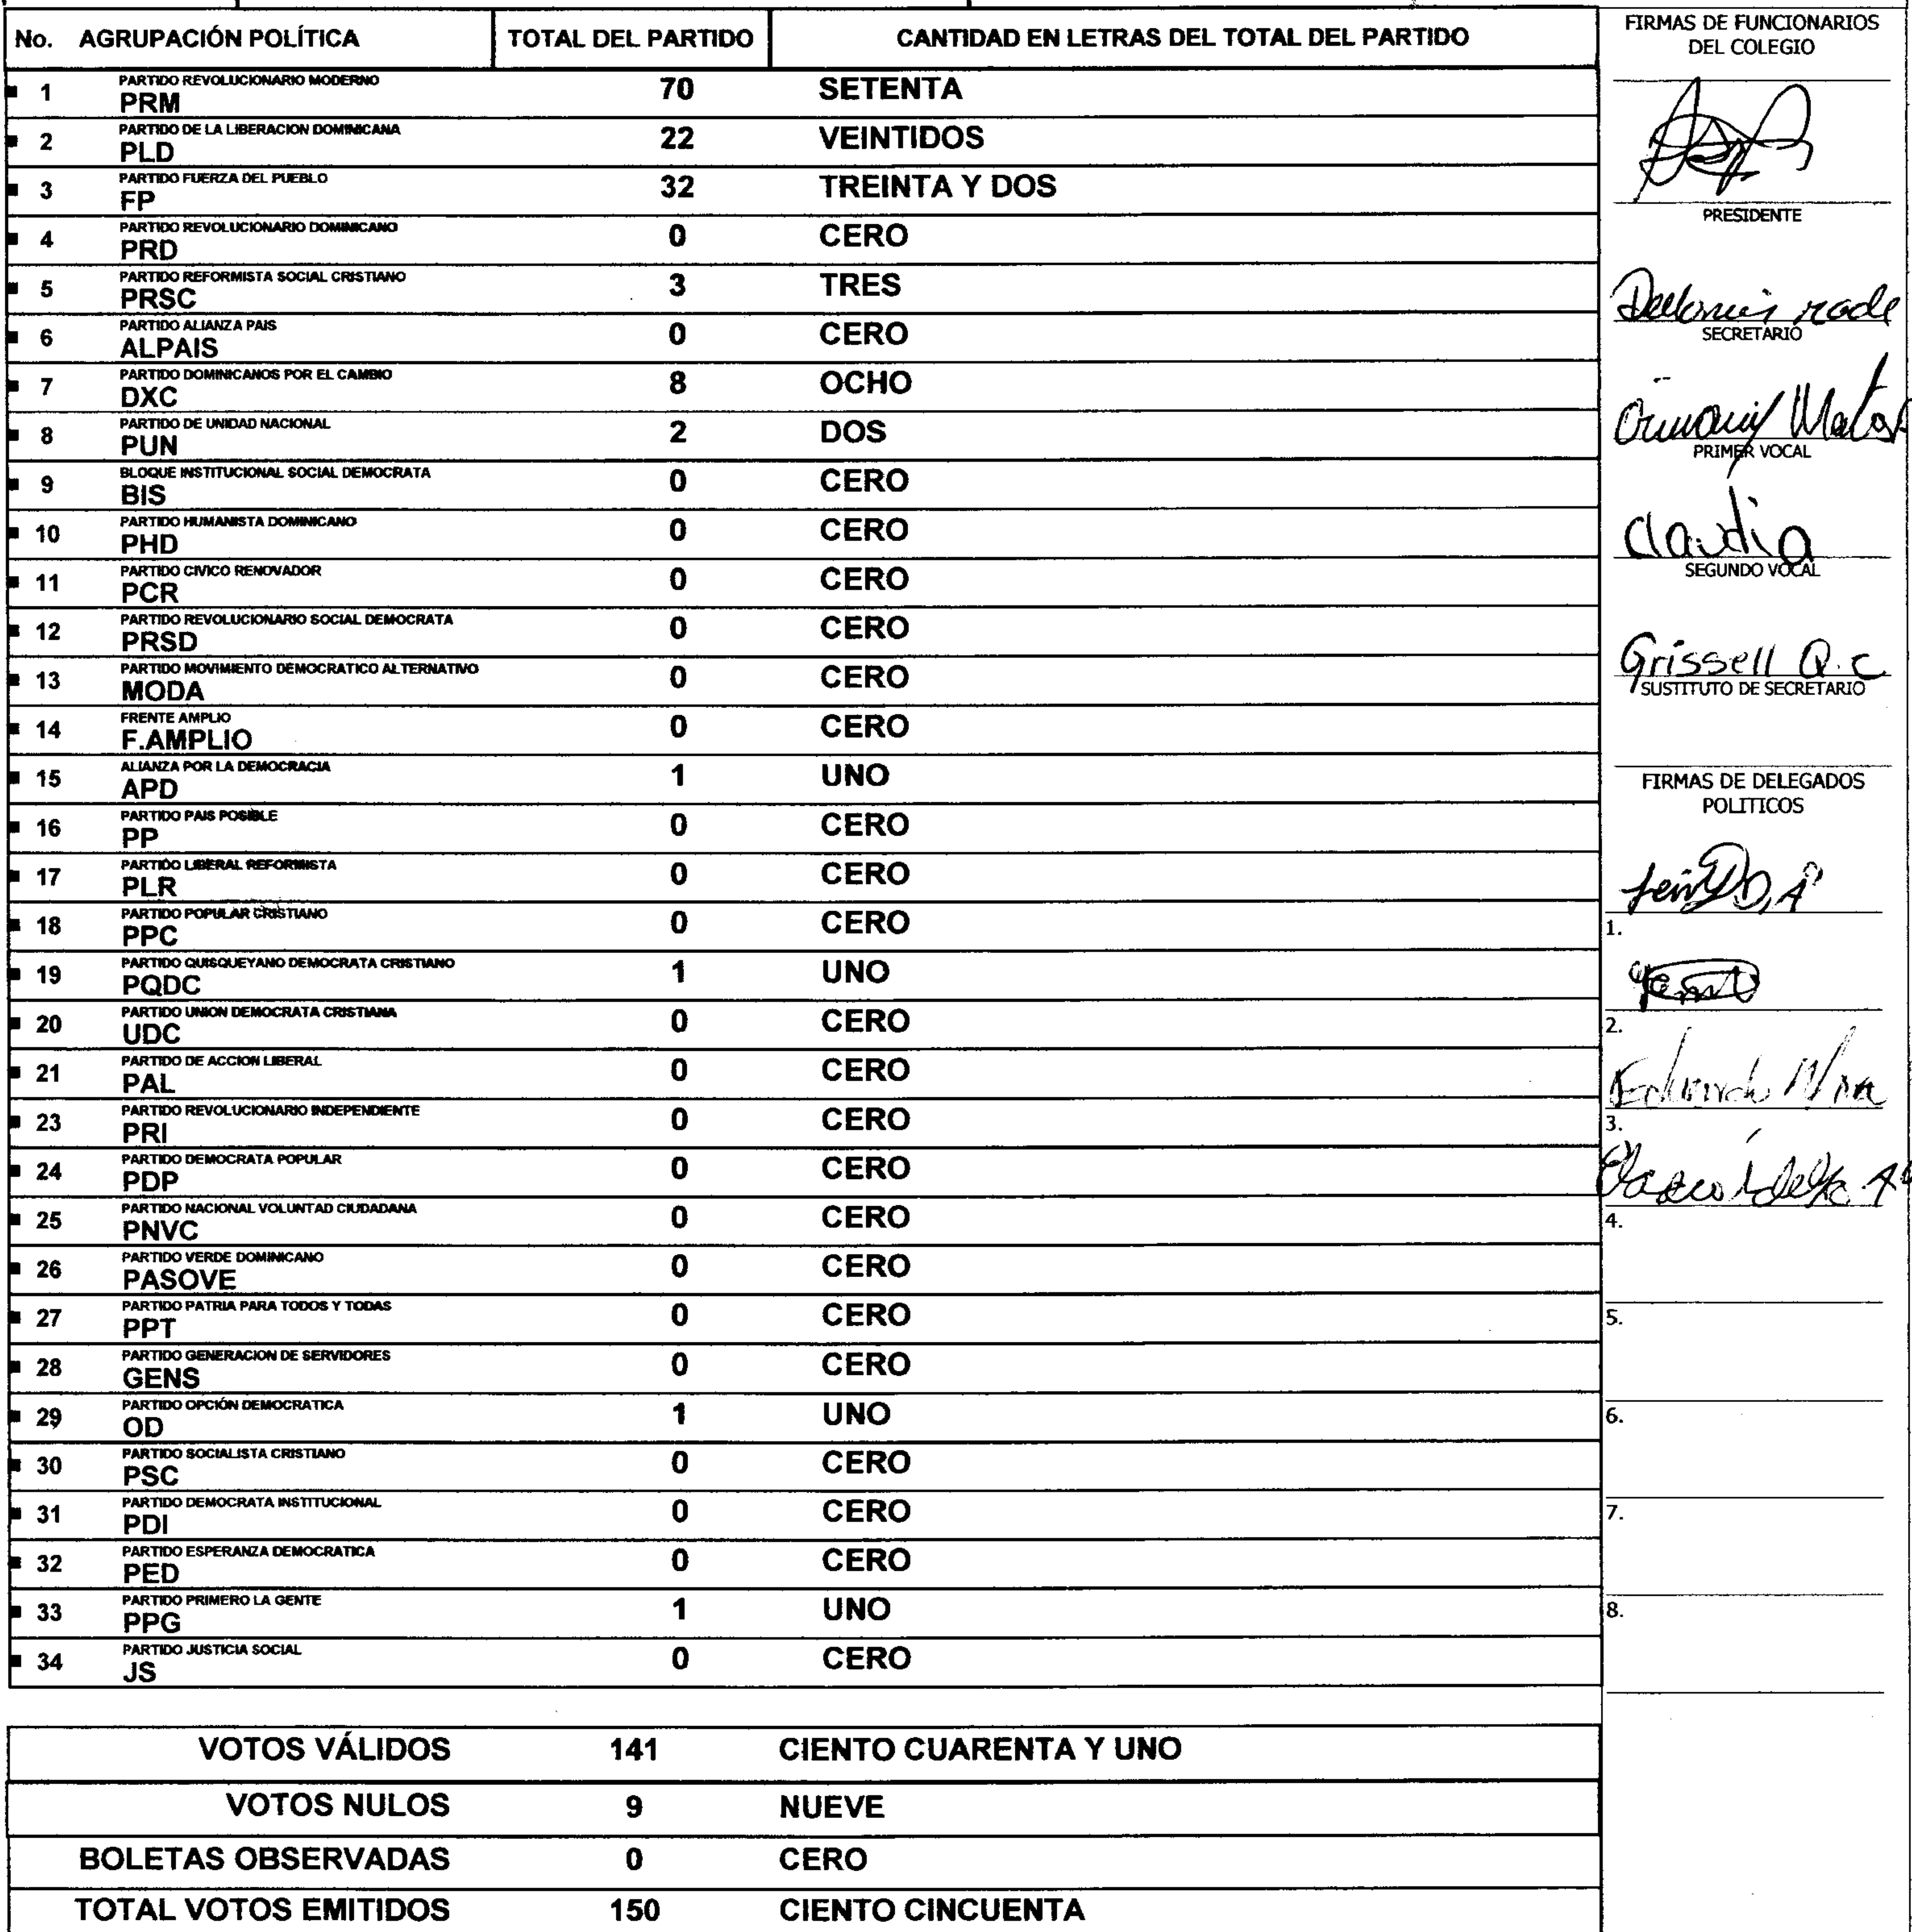 No. AGRUPACIÓN POLÍTICA TOTAL DEL PARTIDO CANTIDAD EN LETRAS DEL TOTAL DEL PARTIDO
1 PARTIDO REVOLUCIONARIO MODERNO
PRM 70 SETENTA
2 PARTIDO DE LA LIBERACION DOMINICANA
PLD 22 VEINTIDOS
3 PARTIDO FUERZA DEL PUEBLO
FP 32 TREINTA Y DOS
4 PARTIDO REVOLUCIONARIO DOMINICANO
PRD 0 CERO
5 PARTIDO REFORMISTA SOCIAL CRISTIANO
PRSC 3 TRES
6 PARTIDO ALIANZA PAIS
ALPAIS 0 CERO
7 PARTIDO DOMINICANOS POR EL CAMBIO
DXC 8 OCHO
8 PARTIDO DE UNIDAD NACIONAL
PUN 2 DOS
9 BLOQUE INSTITUCIONAL SOCIAL DEMOCRATA
BIS 0 CERO
10 PARTIDO HUMANISTA DOMINICANO
PHD 0 CERO
11 PARTIDO CIVICO RENOVADOR
PCR 0 CERO
12 PARTIDO REVOLUCIONARIO SOCIAL DEMOCRATA
PRSD 0 CERO
13 PARTIDO MOVIMIENTO DEMOCRATICO ALTERNATIVO
MODA 0 CERO
14 FRENTE AMPLIO
F.AMPLIO 0 CERO
15 ALIANZA POR LA DEMOCRACIA
APD 1 UNO
16 PARTIDO PAIS POSIBLE
PP 0 CERO
17 PARTIDO LIBERAL REFORMISTA
PLR 0 CERO
18 PARTIDO POPULAR CRISTIANO
PPC 0 CERO
19 PARTIDO QUISQUEYANO DEMOCRATA CRISTIANO
PQDC 1 UNO
20 PARTIDO UNION DEMOCRATA CRISTIANA
UDC 0 CERO
21 PARTIDO DE ACCION LIBERAL
PAL 0 CERO
23 PARTIDO REVOLUCIONARIO INDEPENDIENTE
PRI 0 CERO
24 PARTIDO DEMOCRATA POPULAR
PDP 0 CERO
25 PARTIDO NACIONAL VOLUNTAD CIUDADANA
PNVC 0 CERO
26 PARTIDO VERDE DOMINICANO
PASOVE 0 CERO
27 PARTIDO PATRIA PARA TODOS Y TODAS
PPT 0 CERO
28 PARTIDO GENERACION DE SERVIDORES
GENS 0 CERO
29 PARTIDO OPCIÓN DEMOCRATICA
OD 1 UNO
30 PARTIDO SOCIALISTA CRISTIANO
PSC 0 CERO
31 PARTIDO DEMOCRATA INSTITUCIONAL
PDI 0 CERO
32 PARTIDO ESPERANZA DEMOCRATICA
PED 0 CERO
33 PARTIDO PRIMERO LA GENTE
PPG 1 UNO
34 PARTIDO JUSTICIA SOCIAL
JS 0 CERO
VOTOS VÁLIDOS 141 CIENTO CUARENTA Y UNO
VOTOS NULOS 9 NUEVE
BOLETAS OBSERVADAS 0 CERO
TOTAL VOTOS EMITIDOS 150 CIENTO CINCUENTA
FIRMAS DE FUNCIONARIOS
DEL COLEGIO
PRESIDENTE
SECRETARIO
Matos
PRIMER VOCAL
Claudia
SEGUNDO VOCAL
Grissell Q.C
SUSTITUTO DE SECRETARIO
FIRMAS DE DELEGADOS
POLITICOS
1.
2.
3.
4.
5.
6.
7.
8.